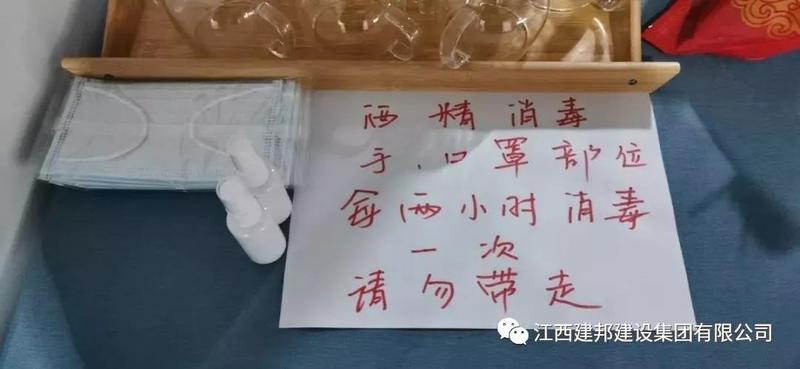 酒精消毒
手、口罩部位
每两小时消毒
一次
请勿带走
江西建邦建设集团有限公司